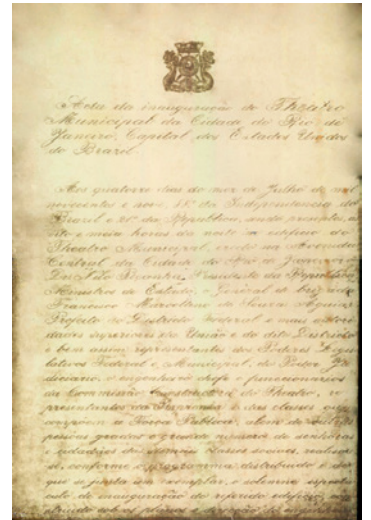 Acta da inauguração do Theatro
Municipal da Cidade do Rio de
Janeiro, Capital dos Estados Unidos
do Brazil
Aos quatorze dias do mez de Julho de mil
novecentos e nove, da Independencia do
Brazil e 21º da Republica, sendo presentes, as
oito e meia horas da noite no edificio do
Theatro Municipal, erecto na Avenida
Central da Cidade do Rio de Janeiro o
Dr. Nilo Peçanha, Presidente da Republica,
Ministros de Estado, General de brigada
Francisco Marcellino de Souza Aguiar
Prefeito do Districto Federal e mais autori
dades superiores da União e do dito Districto
e bem assim representantes dos Poderes Legis
lativos Federal e Municipal, do Poder Ju
diciario, o engenheiro chefe e funccionarios
da Commissão Constructora do Theatro, re
presentantes da Imprensa e das classes, que
compõem a Força Publica, alem de
pessoas gradas e grande numero de senhoras
e cidadãos das demais classes sociaes, realisou
se, conforme o programma distribuido e do
que se junta um exemplar, o solemne
de inauguração do referido edificio,
sobre os planos e direcção do engenheiro